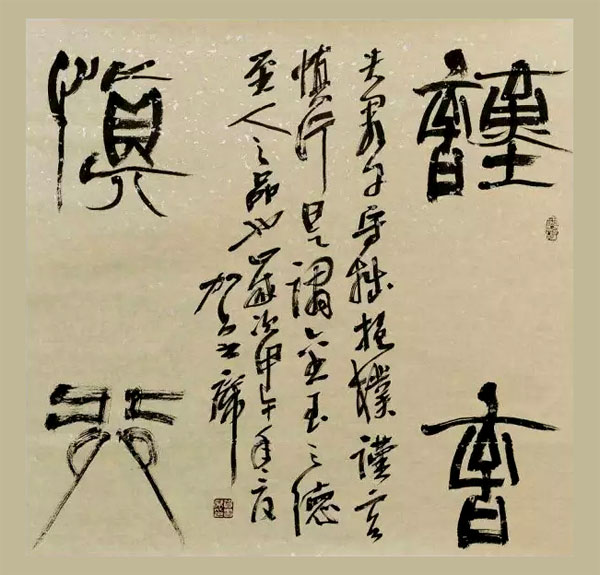 謹言
夫君子守拙抱樸謹言
慎行是謂金玉之德
至人之品也歲次甲午年
慎行